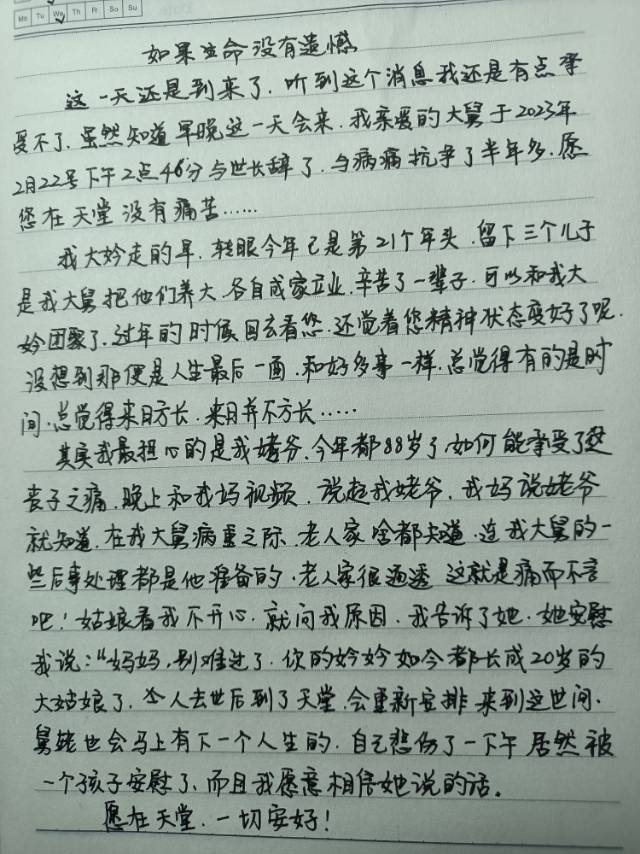 Mo Tu We Th Fr Sa Su
如果生命没有遗憾
这一天还是到来了.听到这个消息我还是有点承
受不了.虽然知道早晚这一天会来.我亲爱的大舅于2023年
2月22号下午2点46分与世长辞了.与病痛抗争了半年多.愿
您在天堂没有痛苦……
我大妗走的早.转眼今年已是第21个年头.留下三个儿子
是我大舅把他们养大.各自成家立业.辛苦了一辈子.可以和我大
妗团聚了.过年的时候回去看您.还觉着您精神状态变好了呢.
没想到那便是人生最后一面.和好多事一样.总觉得有的是时
间.总觉得来日方长.来日并不方长……
其实我最担心的是我姥爷.今年都88岁了.如何能承受了这
丧子之痛.晚上和我妈视频.说起我姥爷.我妈说姥爷
就知道.在我大舅病重之际.老人家啥都知道.连我大舅的一
些后事处理都是他准备的.老人家很通透 这就是痛而不言
吧!姑娘看我不开心.就问我原因.我告诉了她.她安慰
我说:“妈妈,别难过了.你的妗妗如今都长成20岁的
大姑娘了.人去世后到了天堂.会重新安排来到这世间.
舅姥也会马上有下一个人生的.自己悲伤了一下午居然被
一个孩子安慰了、而且我愿意相信她说的话。
愿在天堂.一切安好!